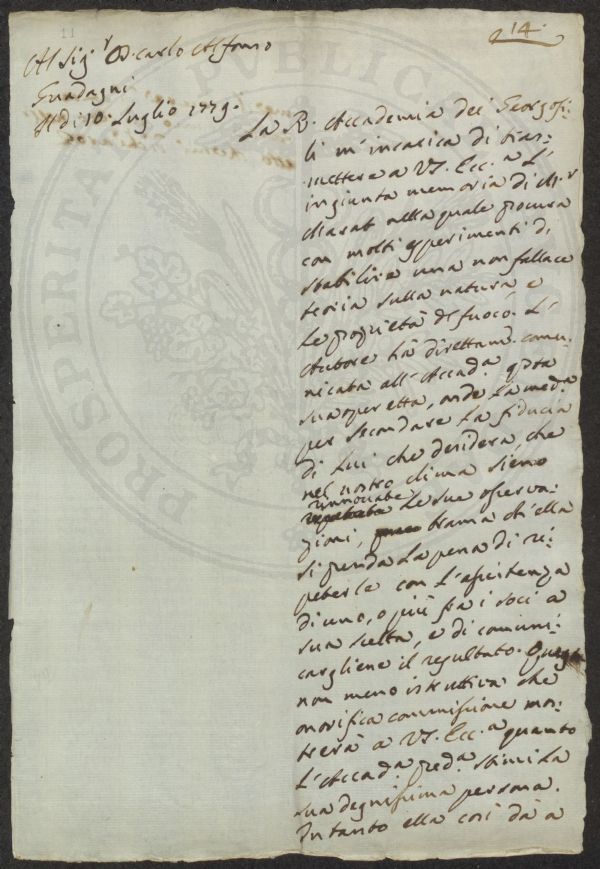 11
14.
Al Sig.r D. Carlo Alfonso
Guadagni
Il dì 10. Luglio 1779.
La R. Accademia dei Georgofi-
li m'incarica di tras-
mettere a VS. Ecc.a l'
ingiunta memoria di M.r
Marat nella quale procura
con molti esperimenti di
stabilire una non fallace
teoria sulla natura, e
le proprietà del fuoco. L'
Autore hà direttam. comu-
nicata all'Accad.a q.sta
sua operetta, onde la med.a
per secondare la fiducia
di lui che desidera, che
nel nostro clima sieno
rinnovate
le sue osserva-
zioni, brama ch'ella
si prenda la pena di ri-
peterle con l'assistenza
di uno, o più fra i soci a
sua scelta, e di comuni-
cargliene il resultato. Questa
non meno istruttiva che
onorifica commissione mos-
trerà a VS. Ecc.a quanto
l'Accad.a pred.a stimi la
sua degnissima persona.
Intanto ella così dà a
PROSPERITATI PUBLICAE